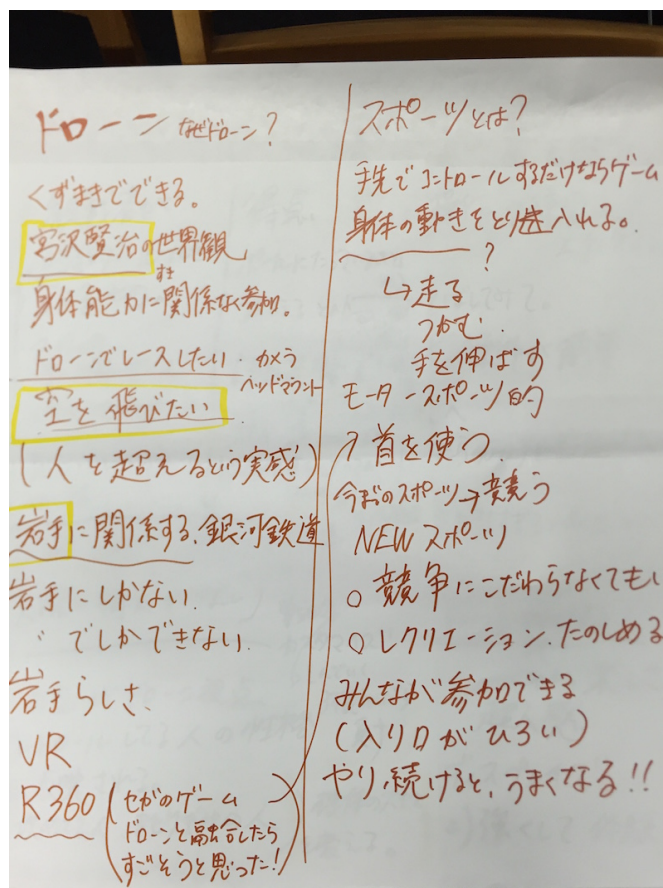 ドローン なぜドローン?
くずまきでできる。
宮沢賢治の世界観
すき
身体能力に関係なく参加。
ドローンでレースしたい. カメラ
ヘッドマウント
空を飛びたい
(人を超えるという実感)
岩手に関係する、銀河鉄道
岩手にしかない.
〃 でしかできない.
岩手らしさ、
VR
R360 (セガのゲーム
ドローンと融合したら
すごそうと思った!)
スポーツとは?
手先でコントロールするだけならゲーム
身体の動きをとり入れる。
?
↳走る
つかむ.
手を伸ばす
モータースポーツ的
首を使う.
今までのスポーツ→競う
NEWスポーツ
○競争にこだわらなくてもい
○レクリエーション.たのしめる
みんなが参加できる
(入り口がひろい)
やり続けると、うまくなる!!